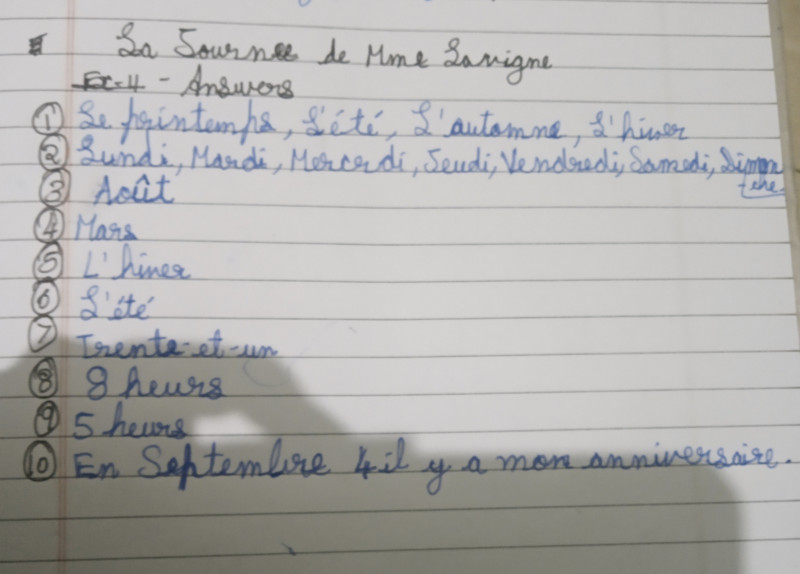 La Journee de Mme Lavigne
Ex-4 - Answers
① Le printemps, L'été, L'automne, L'hiver
② Lundi, Mardi, Mercrdi, Jeudi, Vendredi, Samedi, Diman
-che.
③ Août
④ Mars
⑤ L'hiver
⑥ L'été
⑦ Trente-et-un
⑧ 8 heurs
⑨ 5 heurs
⑩ En Septembre 4 il y a mon anniversaire.